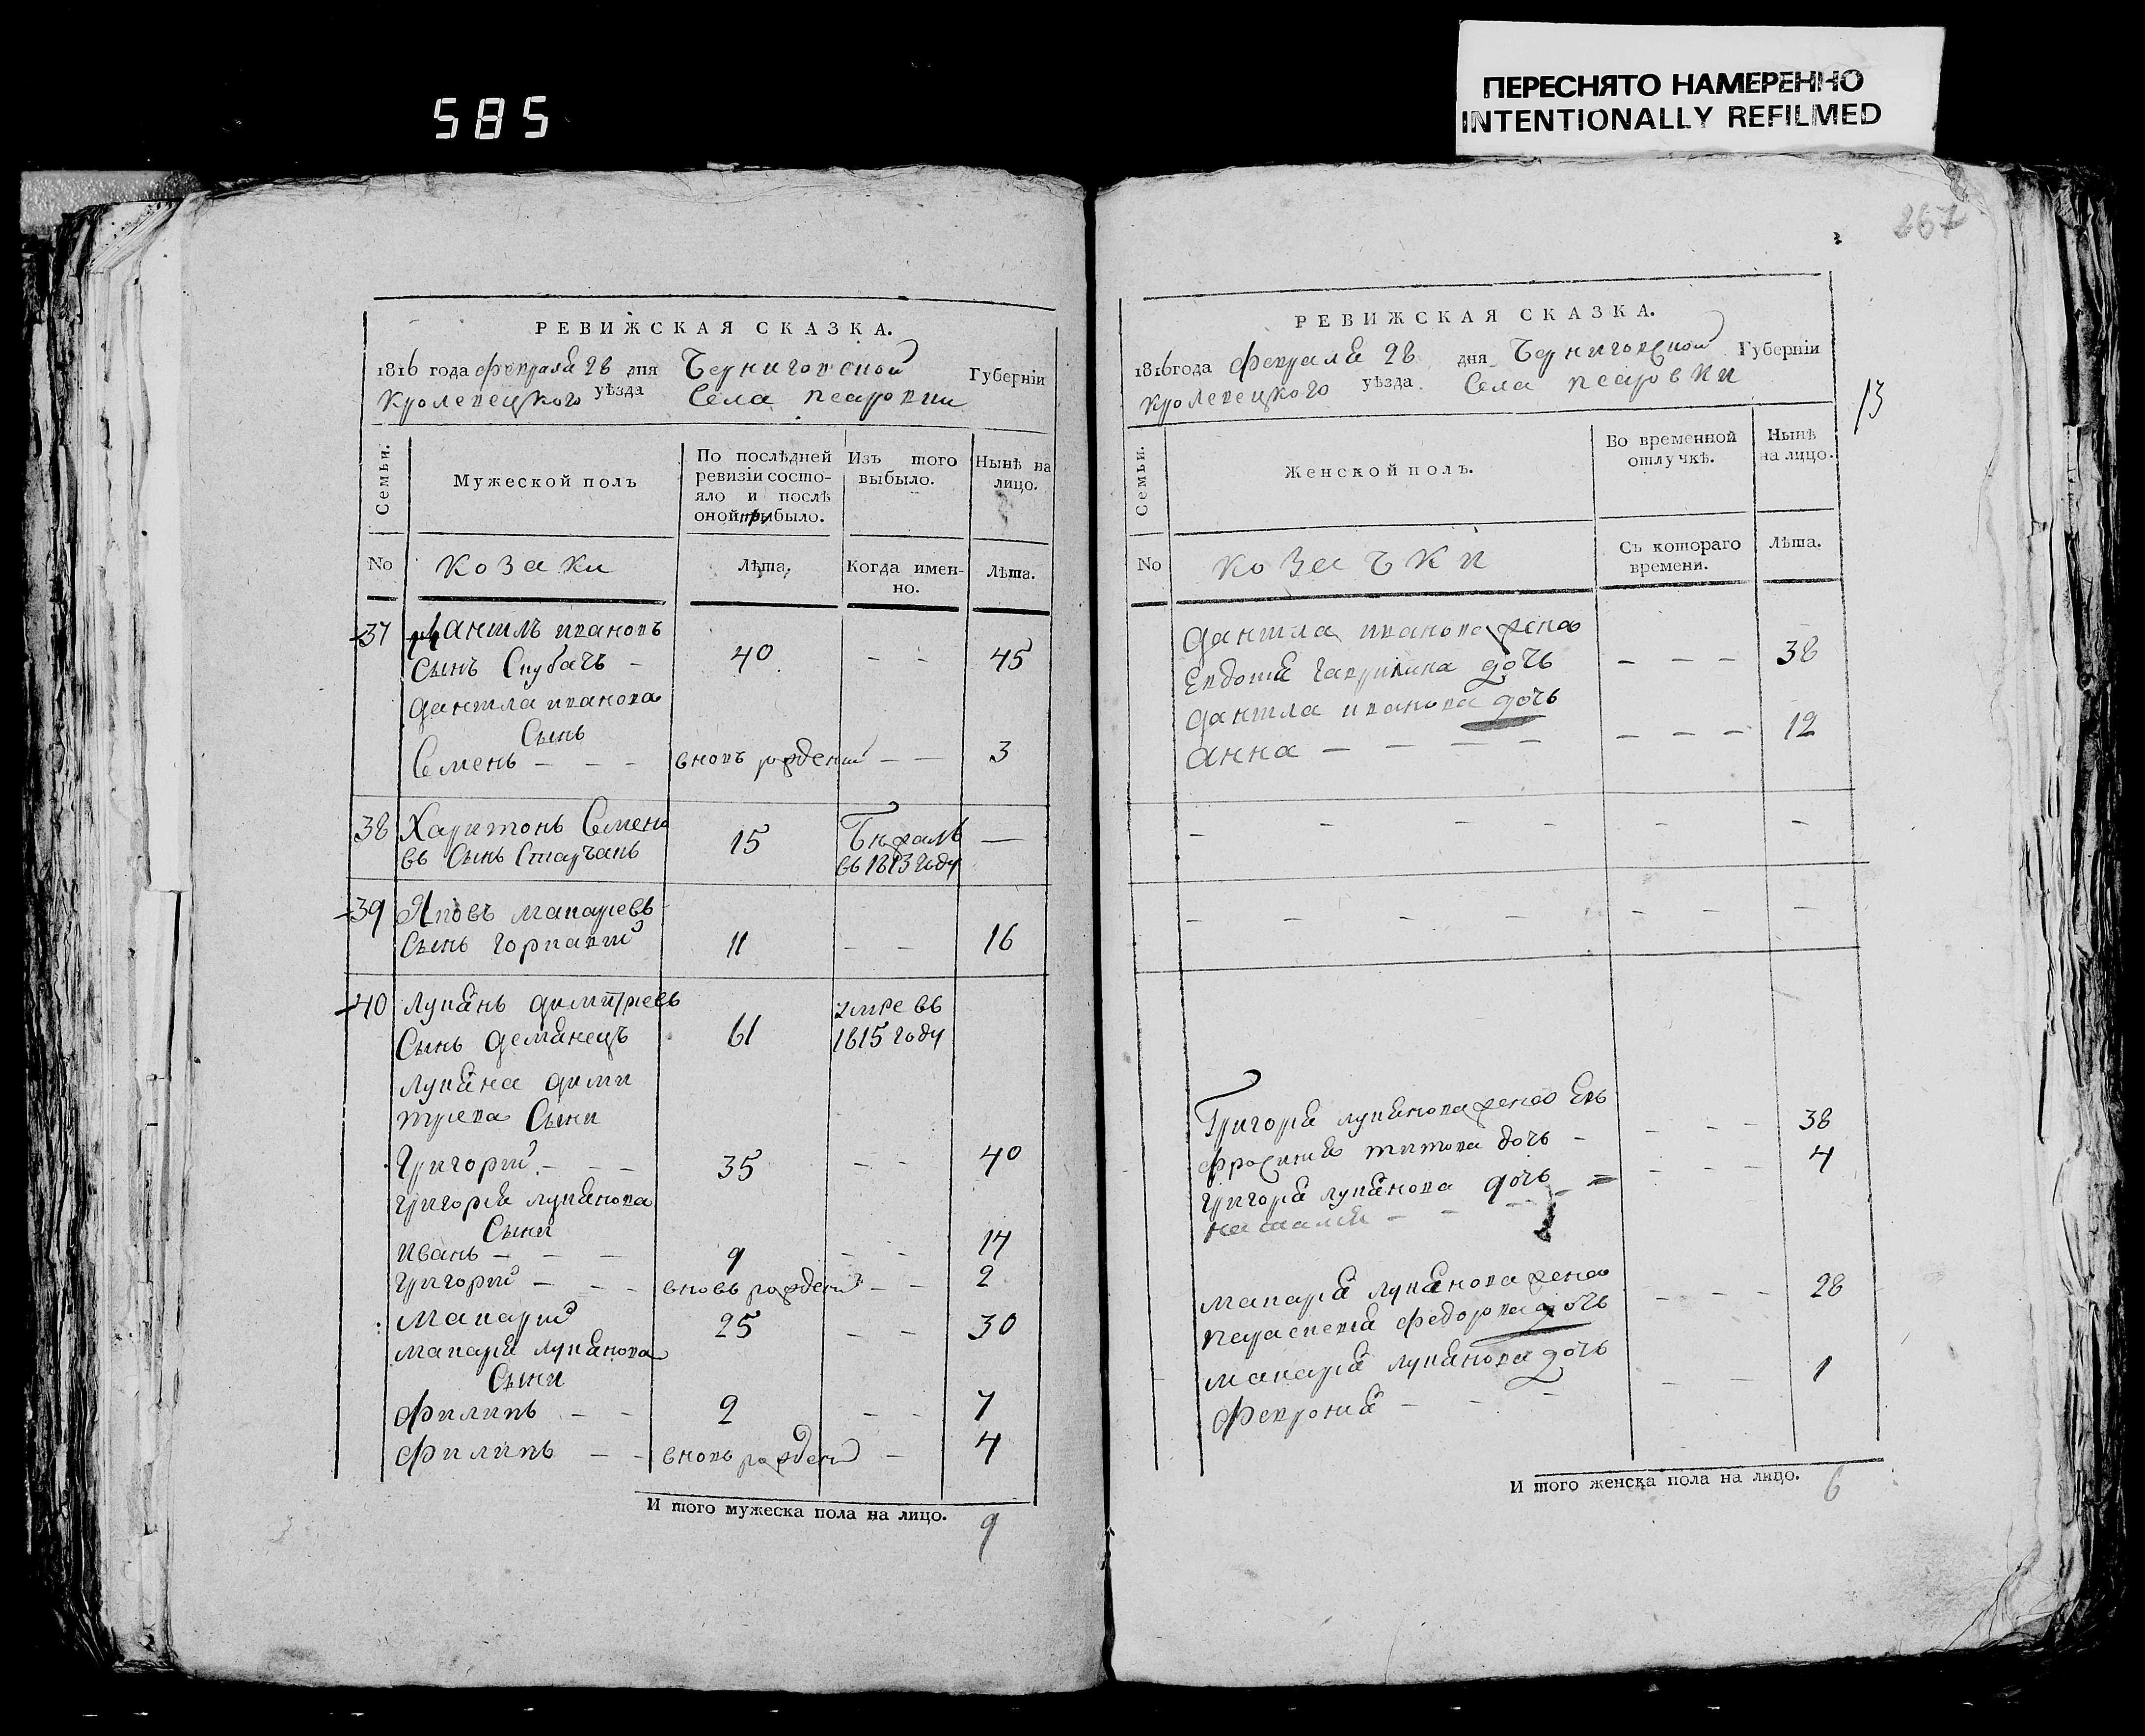 585
ПЕРЕСНЯТО НАМЕРЕННО
INTENTIONALLY REFILMED
267
РЕВИЖСКАЯ СКАЗКА.
1816 года февраля 28 дня Черниговской Губерніи
Кролевецкого уѣзда Села псаровки
Семьи.
Мужеской полъ
По послѣдней
ревизіи состо-
яло и послѣ
оной прибыло.
Изъ того
выбыло.
Нынѣ на
лицо.
No
козаки
Лѣта.
Когда имен-
но.
Лѣта.
37 Данилъ ивановъ
сынъ Скубачъ - 40 - - 45
данила иванова
Сынъ
Семенъ - - - вновъ рожденій - - 3
38 Харитонъ Семено
въ Сынъ Старчакъ 15 Бежалъ —
въ 1813 году
39 Яковъ макаревъ
Сынъ горкавій 11 - - 16
40 лукянъ димитріевъ умре въ
Сынъ демянецъ 61 1815 году
лукяна дими
триева Сыни
Григорій - - - 35 - - 40
григорія лукянова
Сыни
иванъ - - - 9 - - 14
григорій - - - вновъ рожденій - - 2
макарій 25 - - 30
макарія лукянова
Сыни
филипъ - - 2 - - 7
филипъ - - вновъ рожденій - 4
И того мужеска пола на лицо. 9
РЕВИЖСКАЯ СКАЗКА.
1816 года февраля 28 дня Черниговской Губерніи
Кролевецкого уѣзда Села псаровки
13
Семьи.
Женской полъ.
Во временной
отлучкѣ.
Нынѣ
на лицо.
No
козачки
Съ котораго
времени.
Лѣта.
данила иванова жена
Евдокія гаврилина дочь - - - 38
данила иванова дочь
анна - - - - - - - 12
- - - - - - -
- - - - - - - -
Григорія лукянова жена Ев
фросинія титова дочь - - - - 38
григорія лукянова дочь - - - 4
наталія - - -
макарія лукянова жена
параскевія федорова дочь - - - 28
макарія лукянова дочь
Феврония - - - - - 1
И того женска пола на лицо. 6